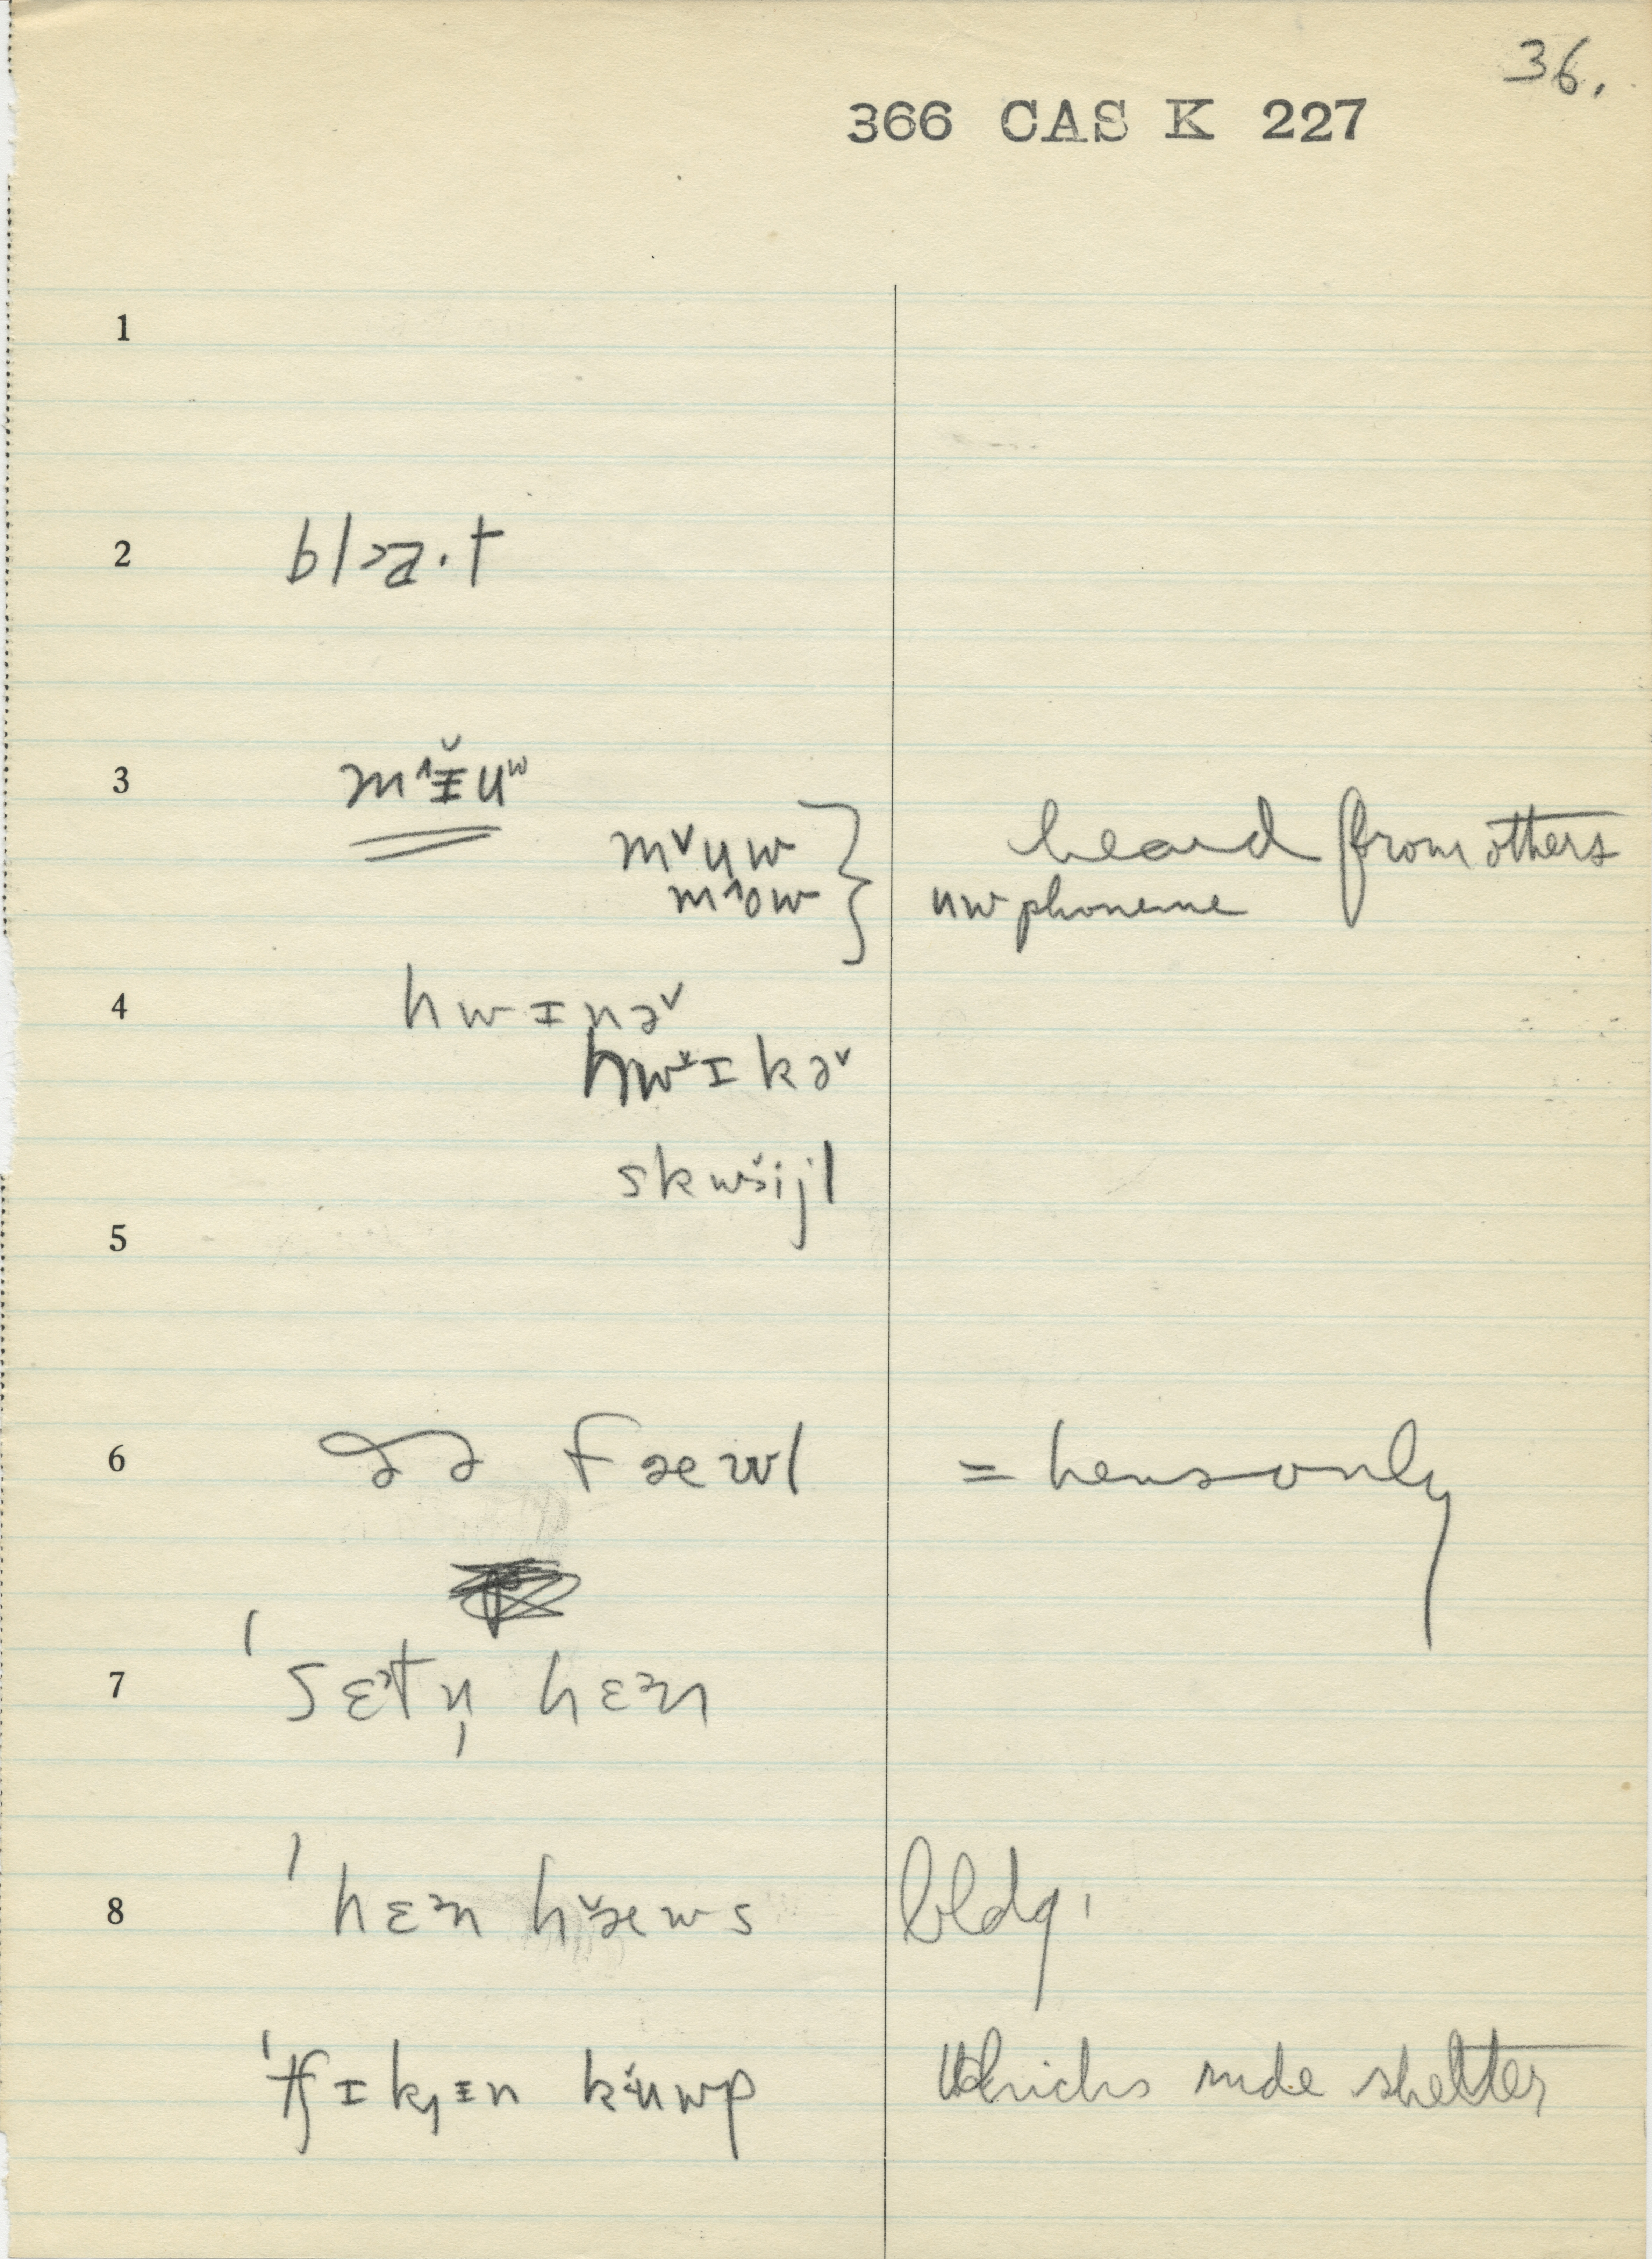 36.
366 CAS K 227
1
2 blɔa·t
3 m˄ɨ̆uʷ
m˅uw
m˄ow } heard from others
uw phoneme
4 hwɪnə˅
hw˅ɪkə˅
skw˅ijl
5
6 fæwl = hens only
7 ˈsɛᵊtn̩ hɛᵊn
8 ˈhɛᵊn h˅æws bldg.
ˈtʃɪk̟ɪn k˅uwp chicks rude shelter